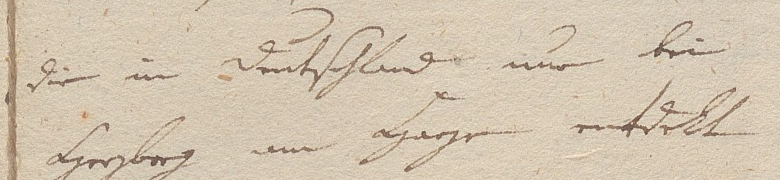 die in Deutschland nur bei
Herzberg am Harze entdekt